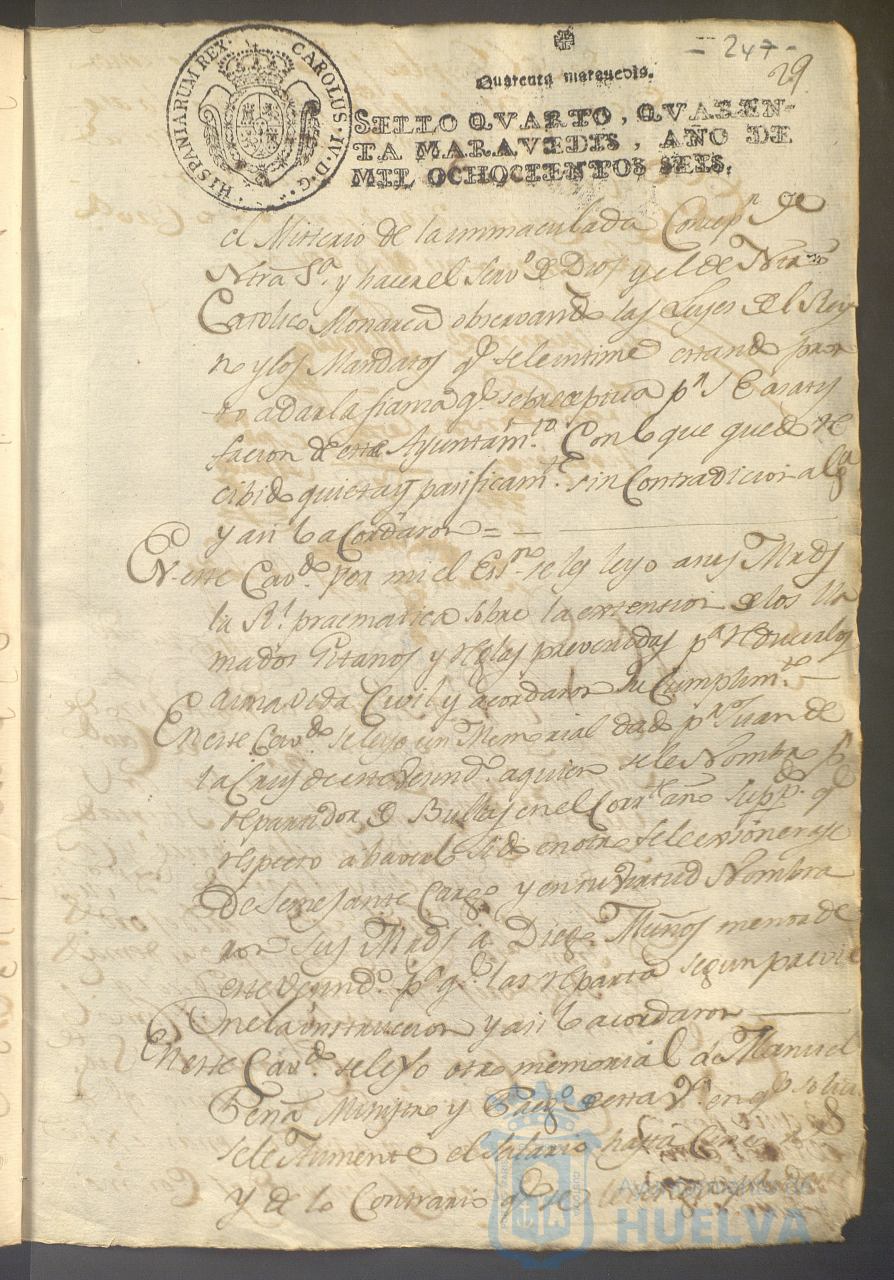 = 247 -
29
Quarenta maravedis.
HISPANIARUM REX. CAROLUS·IV·D·G·
SELLO QVARTO, QVAREN-
TA MARAVEDIS, AÑO DE
MIL OCHOCIENTOS SEIS.
el Misterio de la immaculada Concepn de
Ntra Sa. y hacer el Servo. de Dios y el de Ntro
Catolico Monarca observando las Leyes del Rey
no y los Mandatos qe. se le intime estando pron
to a dar la fianza qe. pa
facion de este Ayuntamto. Con lo que quedo re
cibido quieta y pasificamte. sin Contradicion alga
y asi lo acordaron =
En este Cavdo. por mi el Essno. se les leyo a sus Mrds
la Rl. pracmatica sobre la extension de los lla
mados Gitanos y reglas prevenidas pa. reducirlos
a una vida Civil y acordaron su Cumplimto.
En este Cavdo. se leyo un Memorial dado pr. Juan de
la Cruz de este Vecindo. a quien se le Nombro pr.
reparador de Bullas en el Corrte. año supdo. qe
respecto a haverlo sido en otro se le exsonerase
de semejante Cargo y en su virtud Nombra
ron sus Mrds a Diego Muños menor de
este Vecindo. pa. qe. las reparta segun previe
ne la instruccion y asi lo acordaron
En este Cavdo. se leyo otro memorial de Manuel
Peña Ministro y de esta Va. en qe solicita
se le Aumente el Salario hasta
y de lo Contrario qe se
Ayuntamiento de
HUELVA